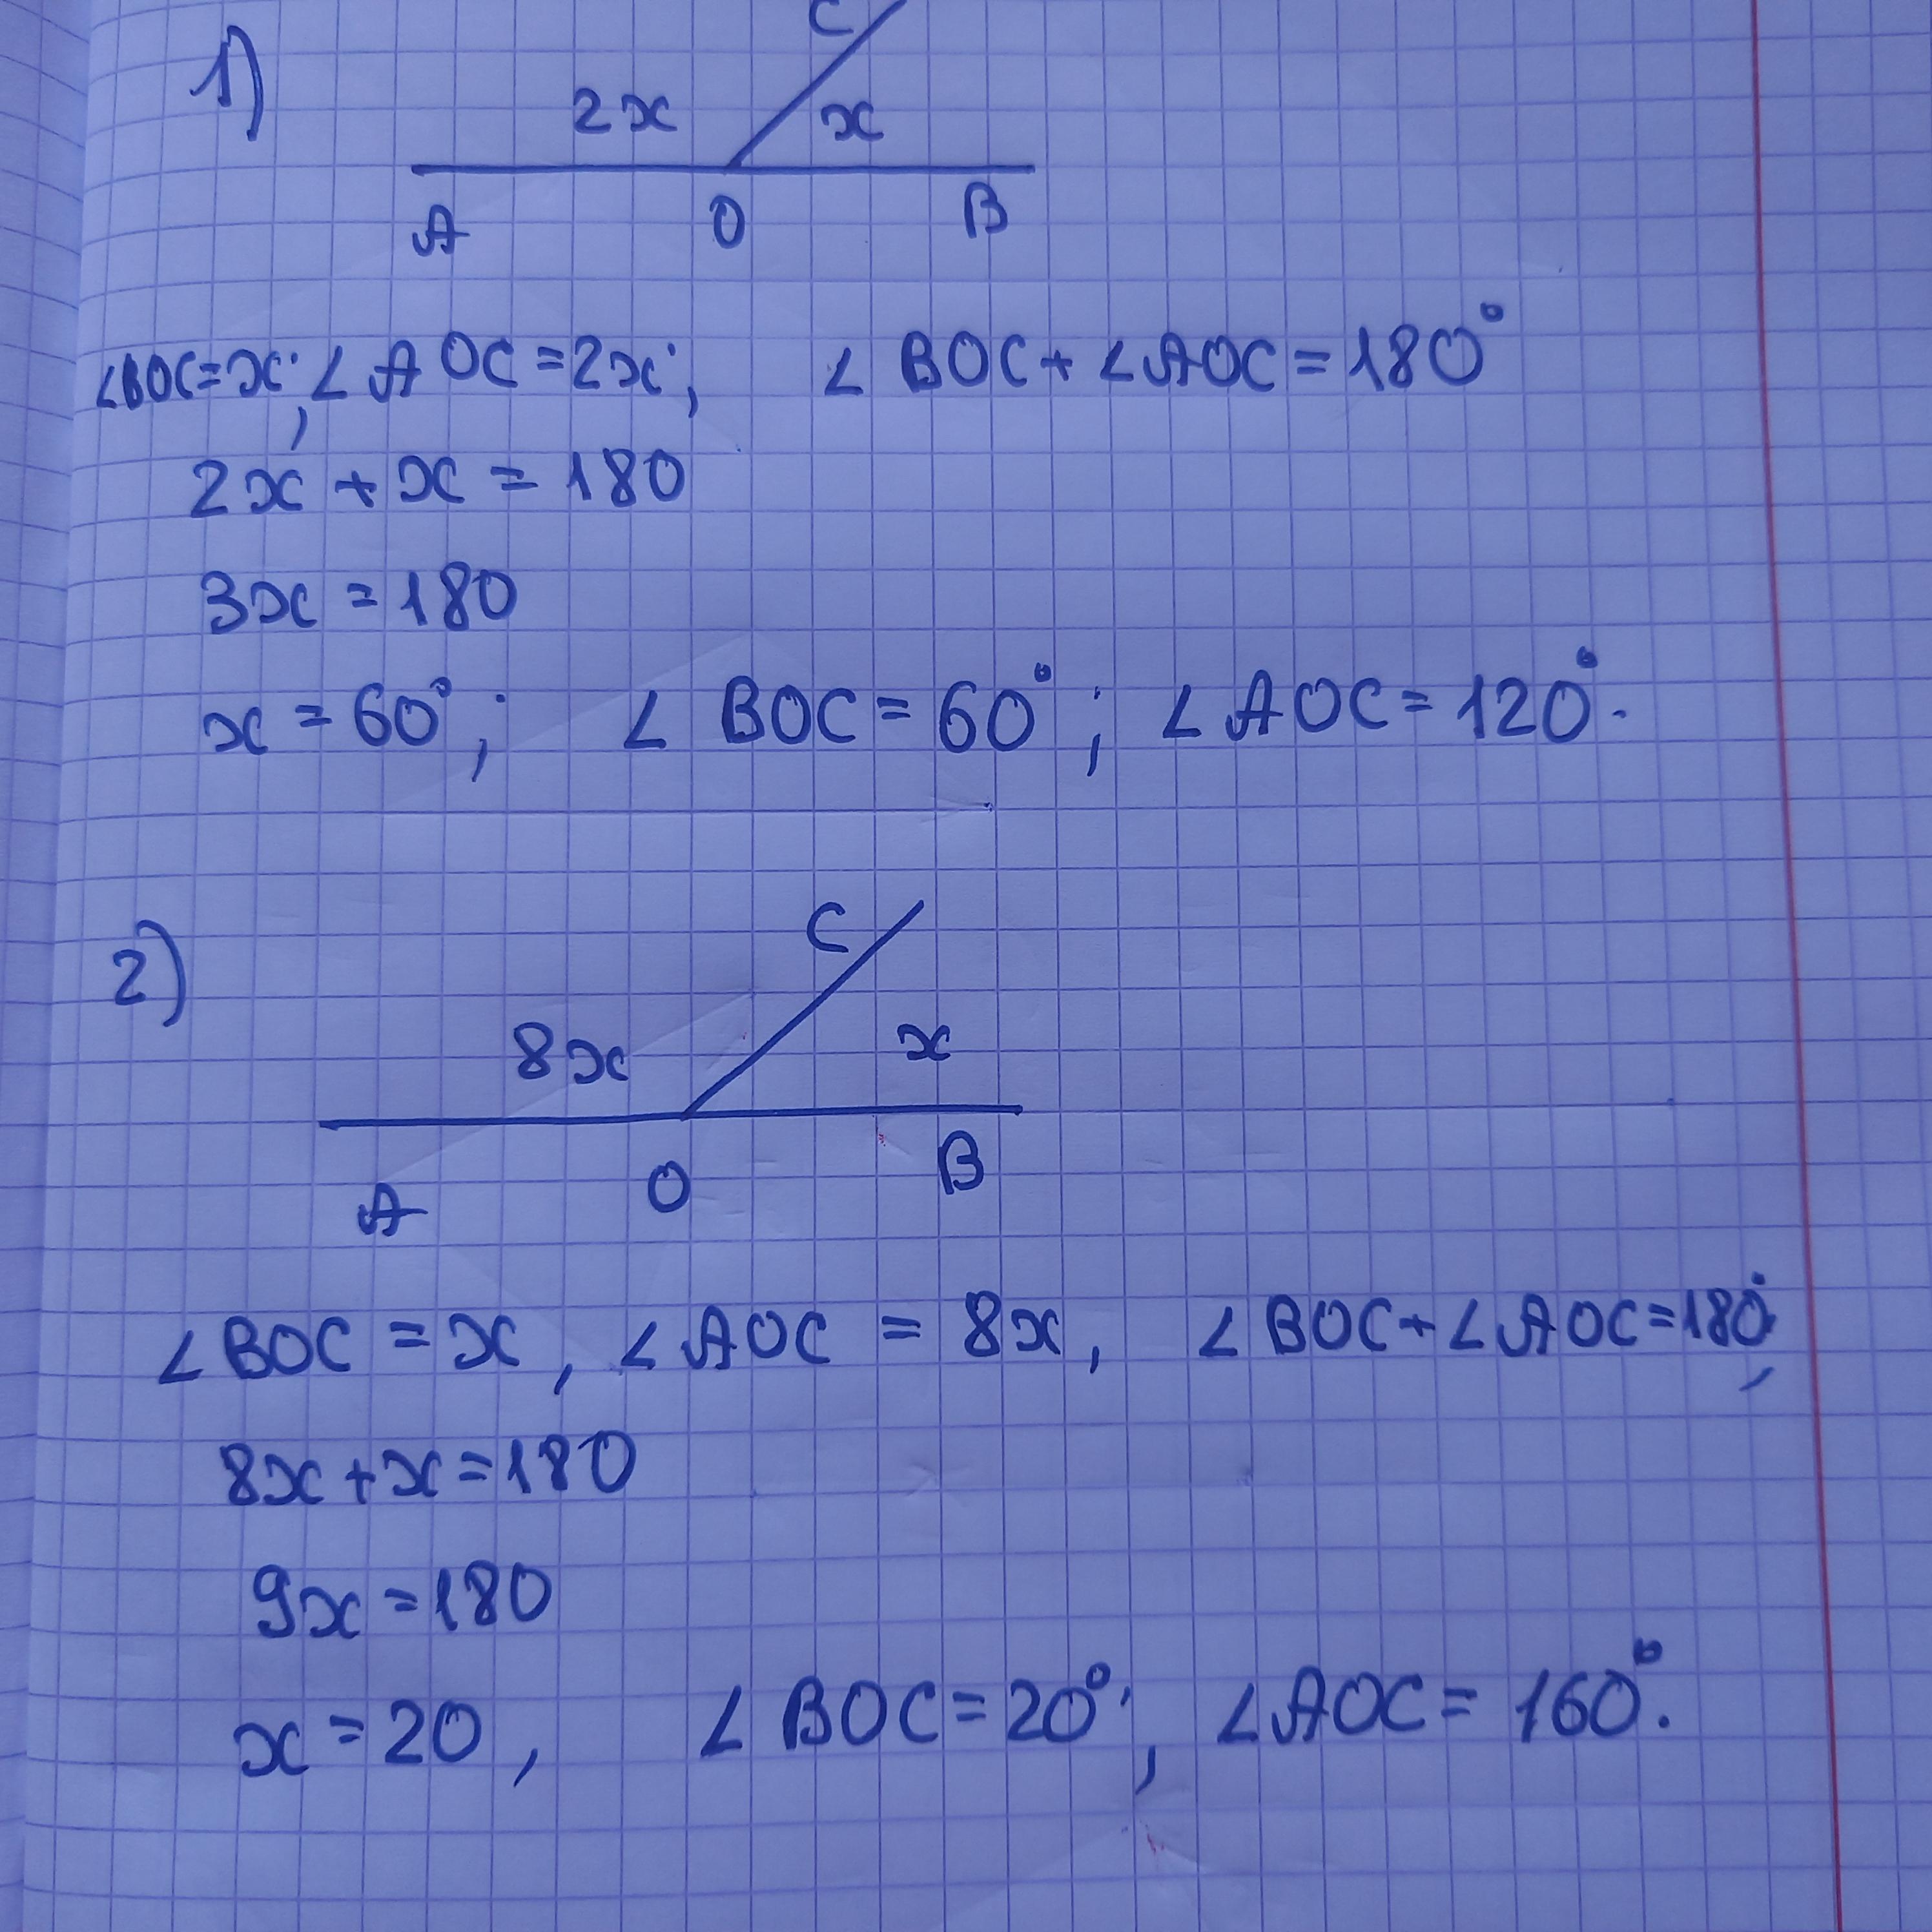 1)
C
2x x
A O B
∠BOC=x; ∠AOC=2x; ∠BOC+∠AOC=180°
2x + x = 180
3x = 180
x = 60°; ∠BOC=60°; ∠AOC=120°.
2)
C
8x x
A O B
∠BOC = x, ∠AOC = 8x, ∠BOC+∠AOC=180°,
8x+x=180
9x=180
x=20, ∠BOC=20°, ∠AOC=160°.